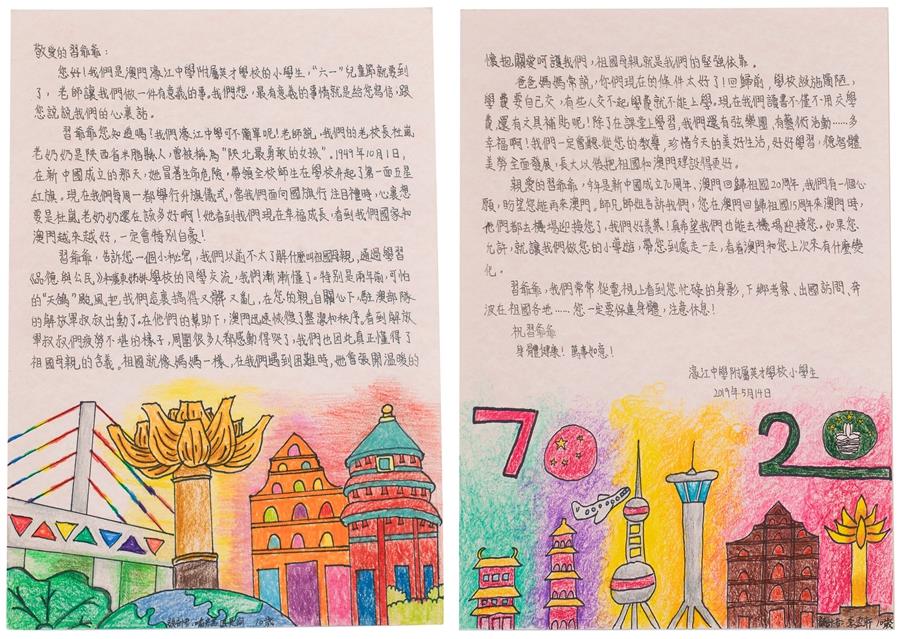 敬愛的習爺爺：
您好！我們是澳門濠江中學附屬英才學校的小學生，“六一”兒童節就要到
了，老師讓我們做一件有意義的事。我們想，最有意義的事情就是給您寫信，跟
您說說我們的心裏話。
習爺爺您知道嗎？我們濠江中學可不簡單呢！老師說，我們的老校長杜嵐
老奶奶是陝西省米脂縣人，曾被稱為“陝北最勇敢的女孩”。1949年10月1日，
在新中國成立的那天，她冒著生命危險，帶領全校師生在學校升起了第一面五星
紅旗。現在我們每周一都舉行升旗儀式，當我們面向國旗行注目禮時，心裏想
要是杜嵐老奶奶還在該多好啊！她看到我們現在幸福成長，看到我們國家和
澳門越來越好，一定會特別自豪！
習爺爺，告訴您一個小秘密，我們以前不太了解什麼叫祖國母親，通過學習
《品德與公民》學校的同學交流，我們漸漸懂了。特別是兩年前，可怕
的“天鴿”颱風把我們這裏搞得又髒又亂，在您的親自關心下，駐澳部隊
的解放軍叔叔出動了。在他們的幫助下，澳門迅速恢復了整潔和秩序。看到解放
軍叔叔們疲勞不堪的樣子，周圍很多人都感動得哭了，我們也因此真正懂得了
祖國母親的含義。祖國就像媽媽一樣，在我們遇到困難時，她會張開溫暖的
10歲
懷抱關愛呵護我們，祖國母親就是我們的堅強依靠。
爸爸媽媽常說，你們現在的條件太好了！回歸前，學校設施簡陋，
學費要自己交，有些人交不起學費就不能上學。現在我們讀書不僅不用交學
費，還有文具補貼呢！除了在課堂上學習，我們還有弦樂團，有藝術活動……多
幸福啊！我們一定會聽從您的教導，珍惜今天的美好生活，好好學習，德智體
美勞全面發展，長大以後把祖國和澳門建設得更好。
親愛的習爺爺，今年是新中國成立70周年、澳門回歸祖國20周年，我們有一個心
願，盼望您能再來澳門。師兄師姐告訴我們，您在澳門回歸祖國15周年來澳門時，
他們都去機場迎接您了，我們好羨慕！真希望我們也能去機場迎接您。如果您
允許，就讓我們做您的小導遊，帶您到處走一走，看看澳門和您上次來有什麼變
化。
習爺爺，我們常常從電視上看到您忙碌的身影，下鄉考察、出國訪問、奔
波在祖國各地……您一定要保重身體，注意休息！
祝習爺爺
身體健康！萬事如意！
濠江中學附屬英才學校小學生
2019年5月14日
70
20
10歲